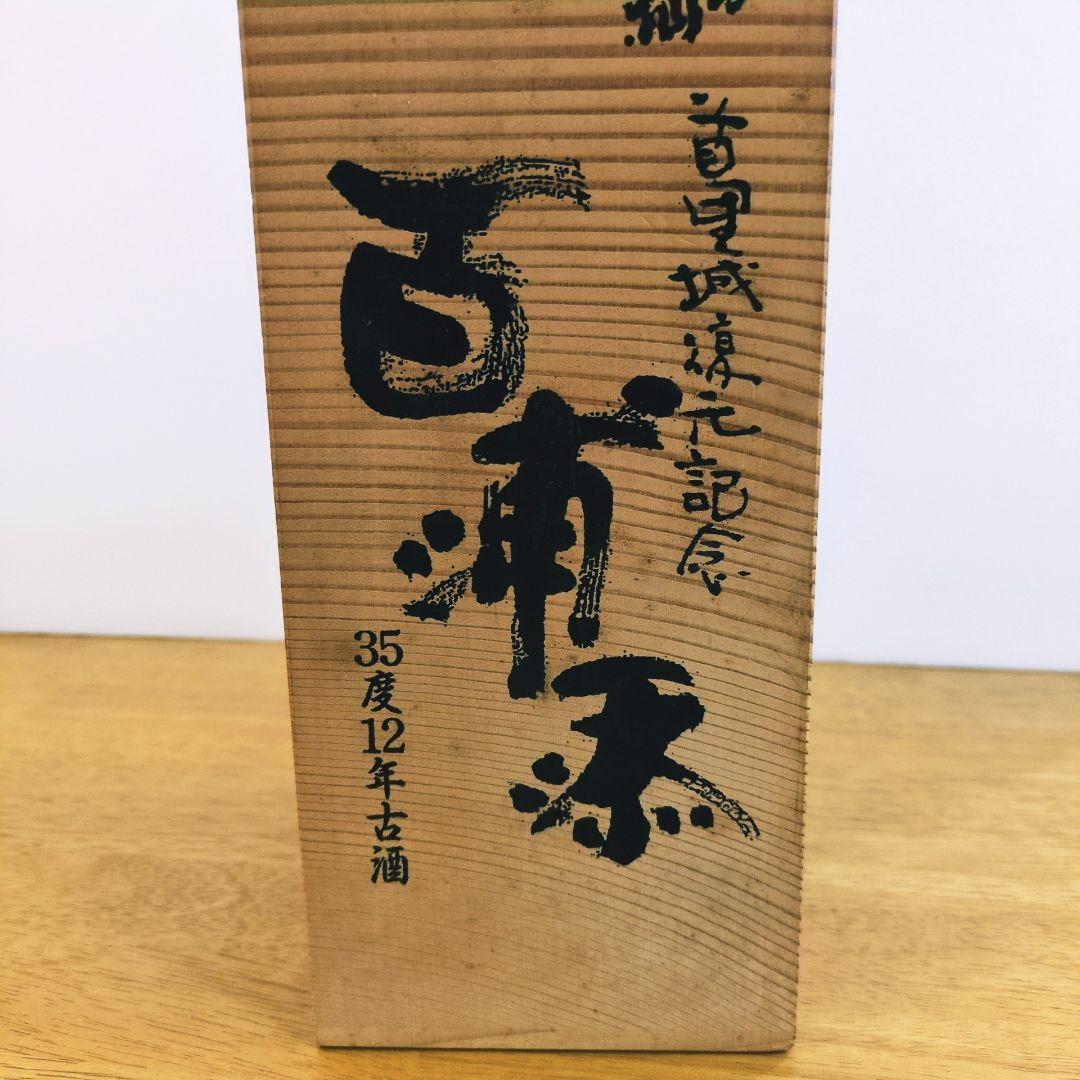 首里城復元記念
百浦添
35度12年古酒